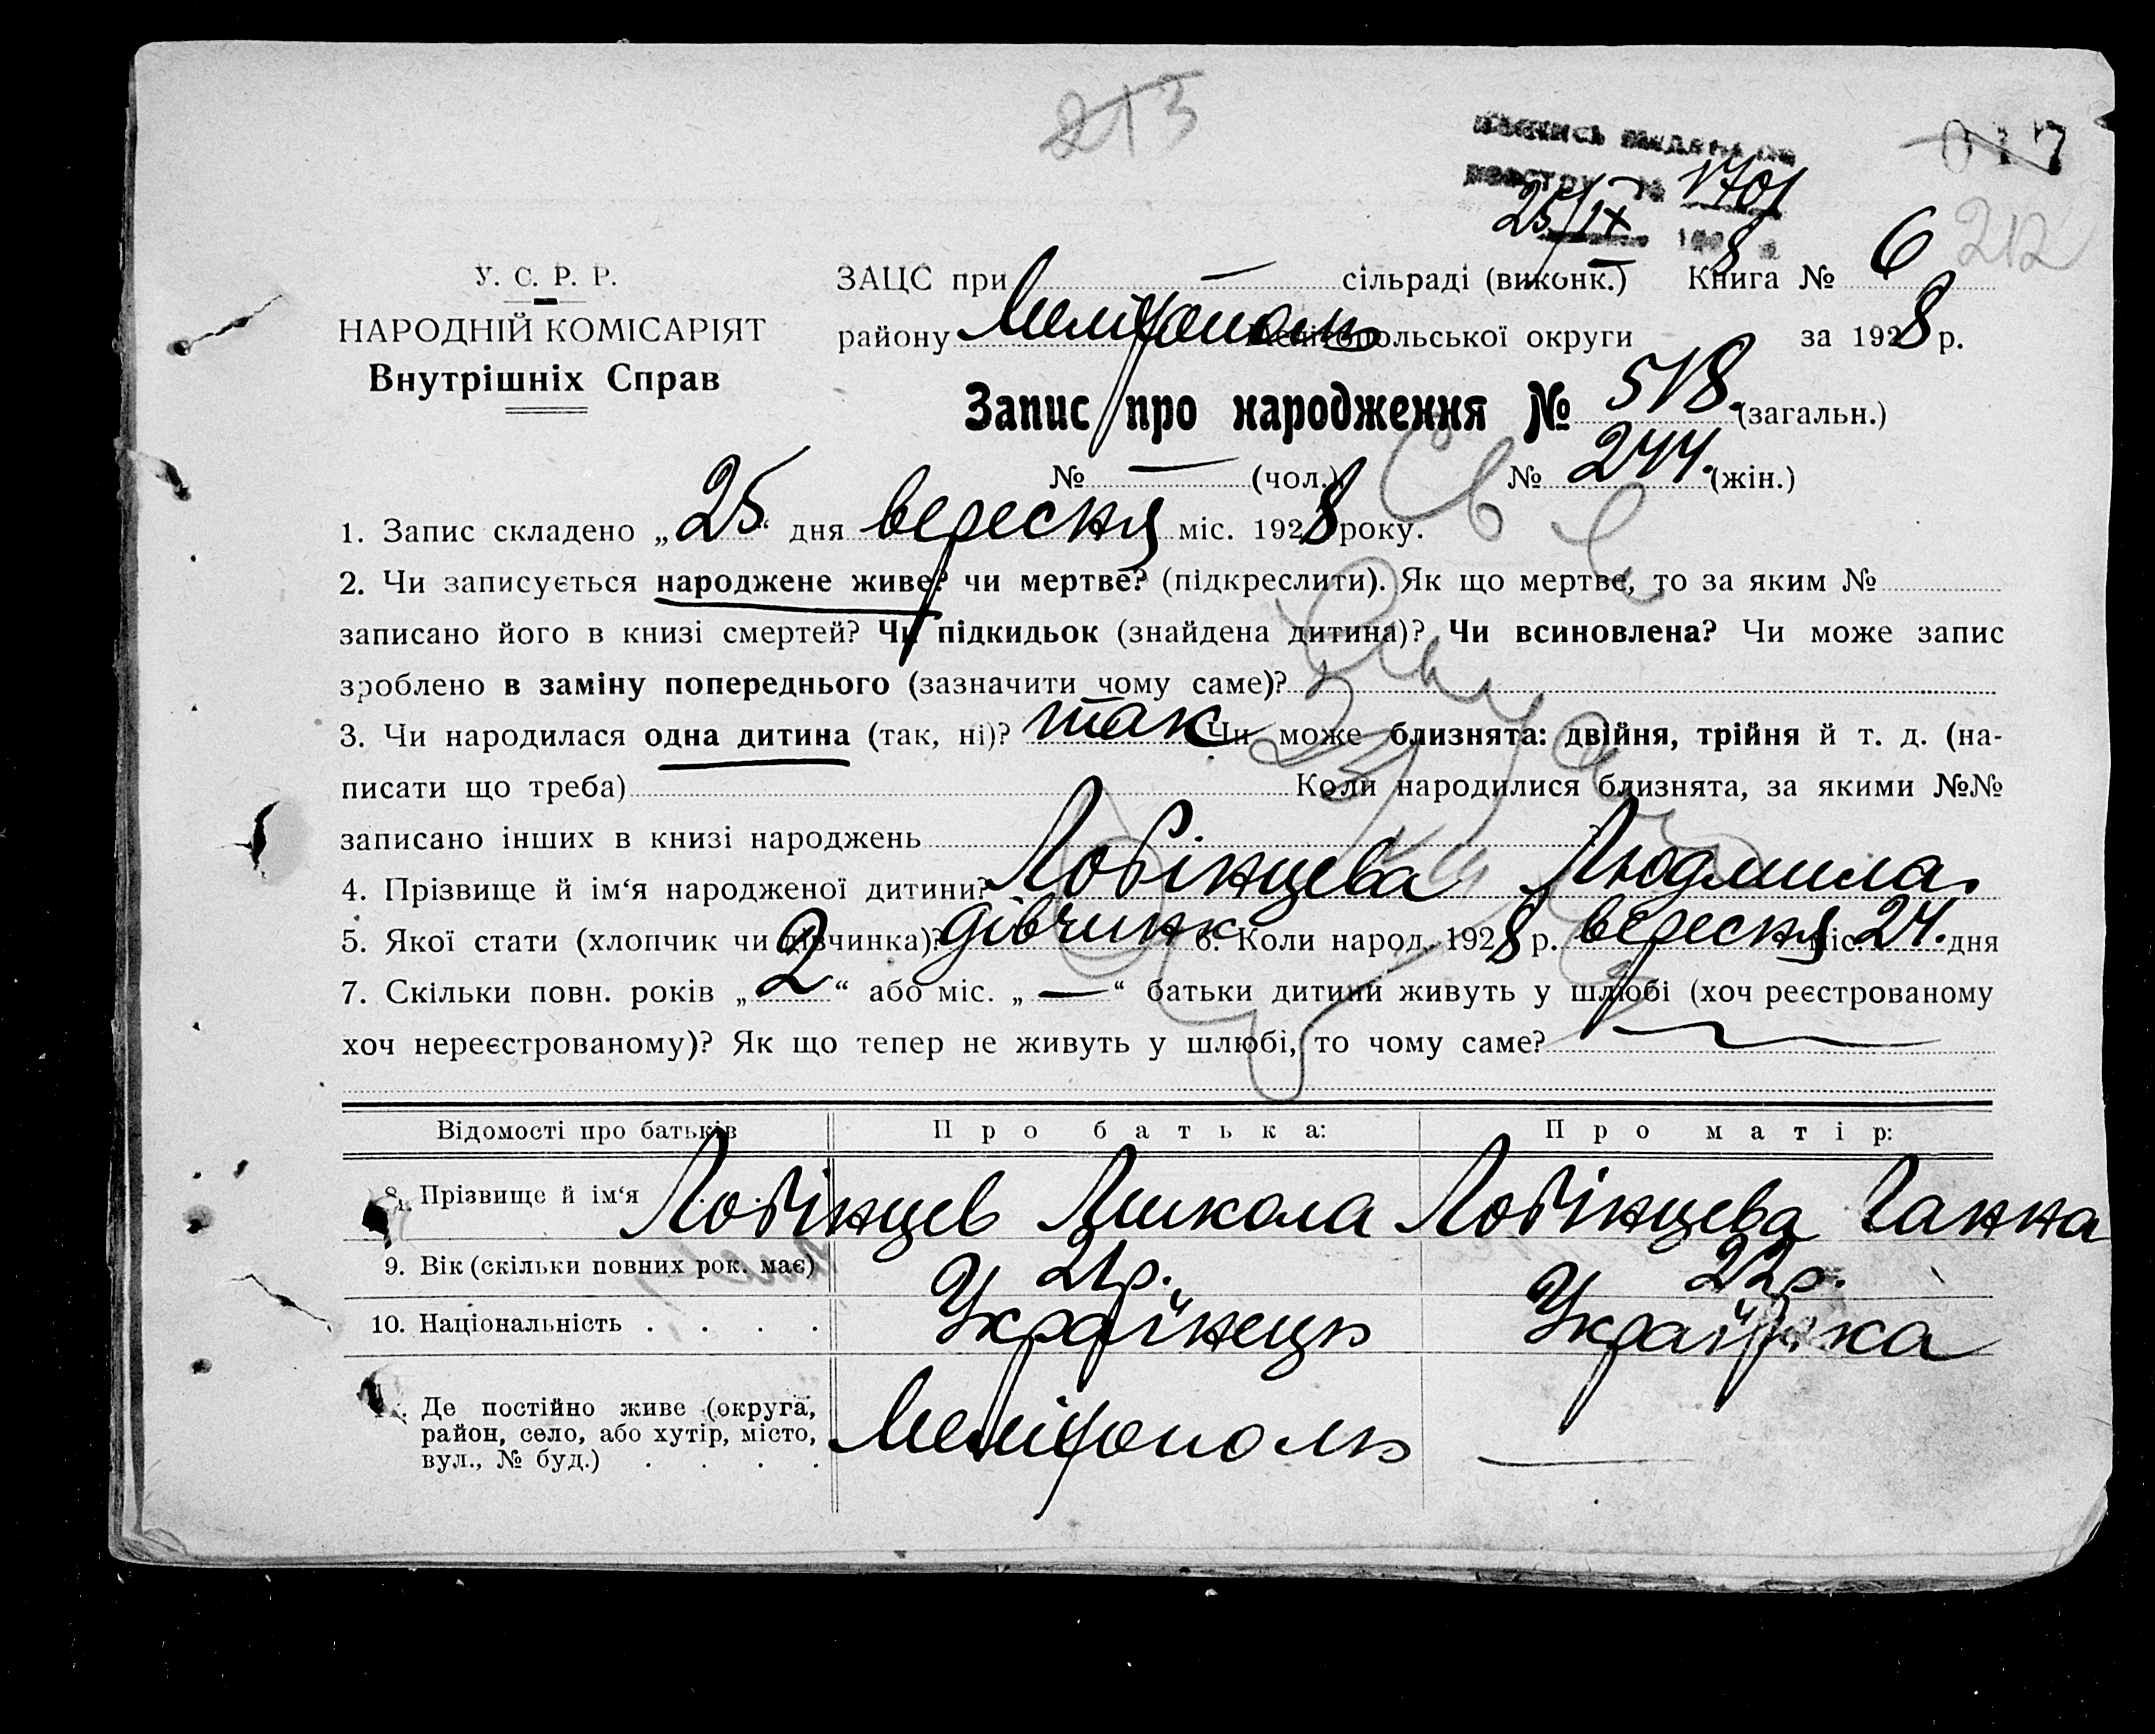 213
017
Випись видана за
реєстру № 1701
25/IX 1928 р.
212
У. С. Р. Р.
НАРОДНІЙ КОМІСАРІЯТ
Внутрішніх Справ
ЗАЦС при — сільраді (виконк.) Книга № 6
району Мелітополь Мелітопольської округи за 1928 р.
Запис про народження № 518. (загальн.)
№ — (чол.) № 244. (жін.)
1. Запис складено „25“ дня вересня міс. 1928 року.
2. Чи записується народжене живе? чи мертве? (підкреслити). Як що мертве, то за яким №
записано його в книзі смертей? Чи підкидьок (знайдена дитина)? Чи всиновлена? Чи може запис
зроблено в заміну попереднього (зазначити чому саме)?
3. Чи народилася одна дитина (так, ні)? так Чи може близнята: двійня, трійня й т. д. (на-
писати що треба) Коли народилися близнята, за якими №№
записано інших в книзі народжень
4. Прізвище й ім‘я народженої дитини? Лобінцева Людмила.
5. Якої стати (хлопчик чи дівчинка)? дівчинк 6. Коли народ. 1928 р. вересня міс. 24. дня
7. Скільки повн. років „2“ або міс. „—“ батьки дитини живуть у шлюбі (хоч реєстрованому
хоч нереєстрованому)? Як що тепер не живуть у шлюбі, то чому саме?
Відомості про батьків Про батька: Про матір:
8. Прізвище й ім‘я Лобінцев Микола Лобінцева Ганна
9. Вік (скільки повних рок. має) 21р. 22р.
10. Національність . . . . Українець Українка
11. Де постійно живе (округа,
район, село, або хутір, місто,
вул., № буд.) . . . . Мелітополь —